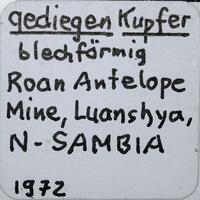 gediegen Kupfer
blechförmig
Roan Antelope
Mine, Luanshya,
N - SAMBIA
1972